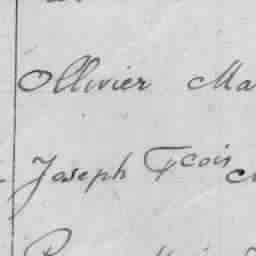 Ollivier Ma
Joseph Fçois